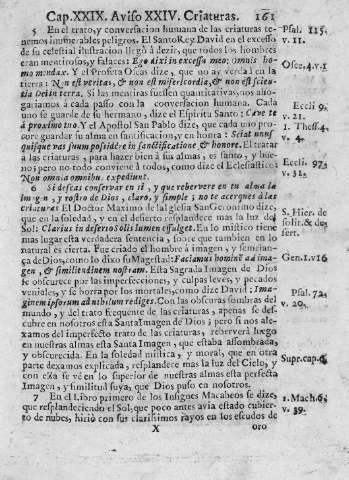 Cap.XXIX. Aviso XXIV. Criaturas. 161
5 En el trato, y conversacion humana de las criaturas te-
nemos inumerables peligros. El Santo Rey David en el excesso
de su celestial ilustracion llegò à dezir, que todos los hombres
eran mentirosos, y falaces: Ego dixi in excessu meo; omnis ho-
mo mendax. Y el Profeta Oseas dize, que no ay verdad en la
tierra: Non est veritas, & non est misericordia, & non est scien-
tia Dei in terra. Si las mentiras fuessen quantitativas, nos aho-
gariamos à cada passo con la conversacion humana. Cada
uno se guarde de su hermano, dize el Espiritu Santo: Cave te
à proximo tuo. Y el Apostol San Pablo dize, que cada uno pro-
cure guardar su alma en santificacion, y en honra: Sciat unus
quisque vas suum possidere in sanctificatione & honore. El tratar
a las criaturas, para hazer bien à sus almas, es santo, y bue-
no; pero no todo conviene à todos, como dize el Eclesiastico:
Non omnia omnibus expediunt.
6 Si deseas conservar en ti, y que rebervere en tu alma la
imagen, y rostro de Dios, claro, y simple; no te acerques a las
criaturas El Doctor Maximo de la Iglesia San Geronimo dize,
que en la soledad, y en el desierto resplandece mas la luz del
Sol: Clarius in deserto Solis lumen effulget. En lo mistico tiene
mas lugar esta verdadera sentencia, porque tambien en lo
natural es cierta. Fue criado el hombre à imagen, y semejan-
ça de Dios, como lo dixo su Magestad: Faciamus hominem ad imagi-
nem, & similitudinem nostram. Esta Sagrada Imagen de Dios
se obscurece por las imperfecciones, y culpas leves, y pecados
veniales, y se borra por los mortales, como dize David: Ima-
ginem ipsorum ad nihilum rediges. Con las obscuras sombras del
mundo, y del trato frequente de las criaturas, apenas se des-
cubre en nosotros esta Santa Imagen de Dios; pero si nos ale-
xamos del imperfecto trato de las criaturas, rebervera luego
en nuestras almas esta Santa Imagen, que estaba assombrada,
y obscurecida. En la soledad mistica, y moral, que en otra
parte dexamos explicada, resplandece mas la luz del Cielo, y
con ella se vè en lo superior de nuestras almas esta perfecta
Imagen, y similitud suya, que Dios puso en nosotros.
7 En el Libro primero de los Insignes Macabeos se dize,
que resplandeciendo el Sol, que poco antes avia estado cubier-
to de nubes, hiriò con sus clarissimos rayos en los escudos de
X oro
Psal. 115.
v. 11.
Osee. 4. v. 1
Eccli 9.
v. 21.
1. Thess. 4.
v. 4.
Eccli. 37.
v. 31.
S. Hier. de
solit. & de-
sert.
Gen. 1. v 16
Psal. 72.
v. 20.
Supr. cap. 6.
1. Mach. 6.
v. 39.